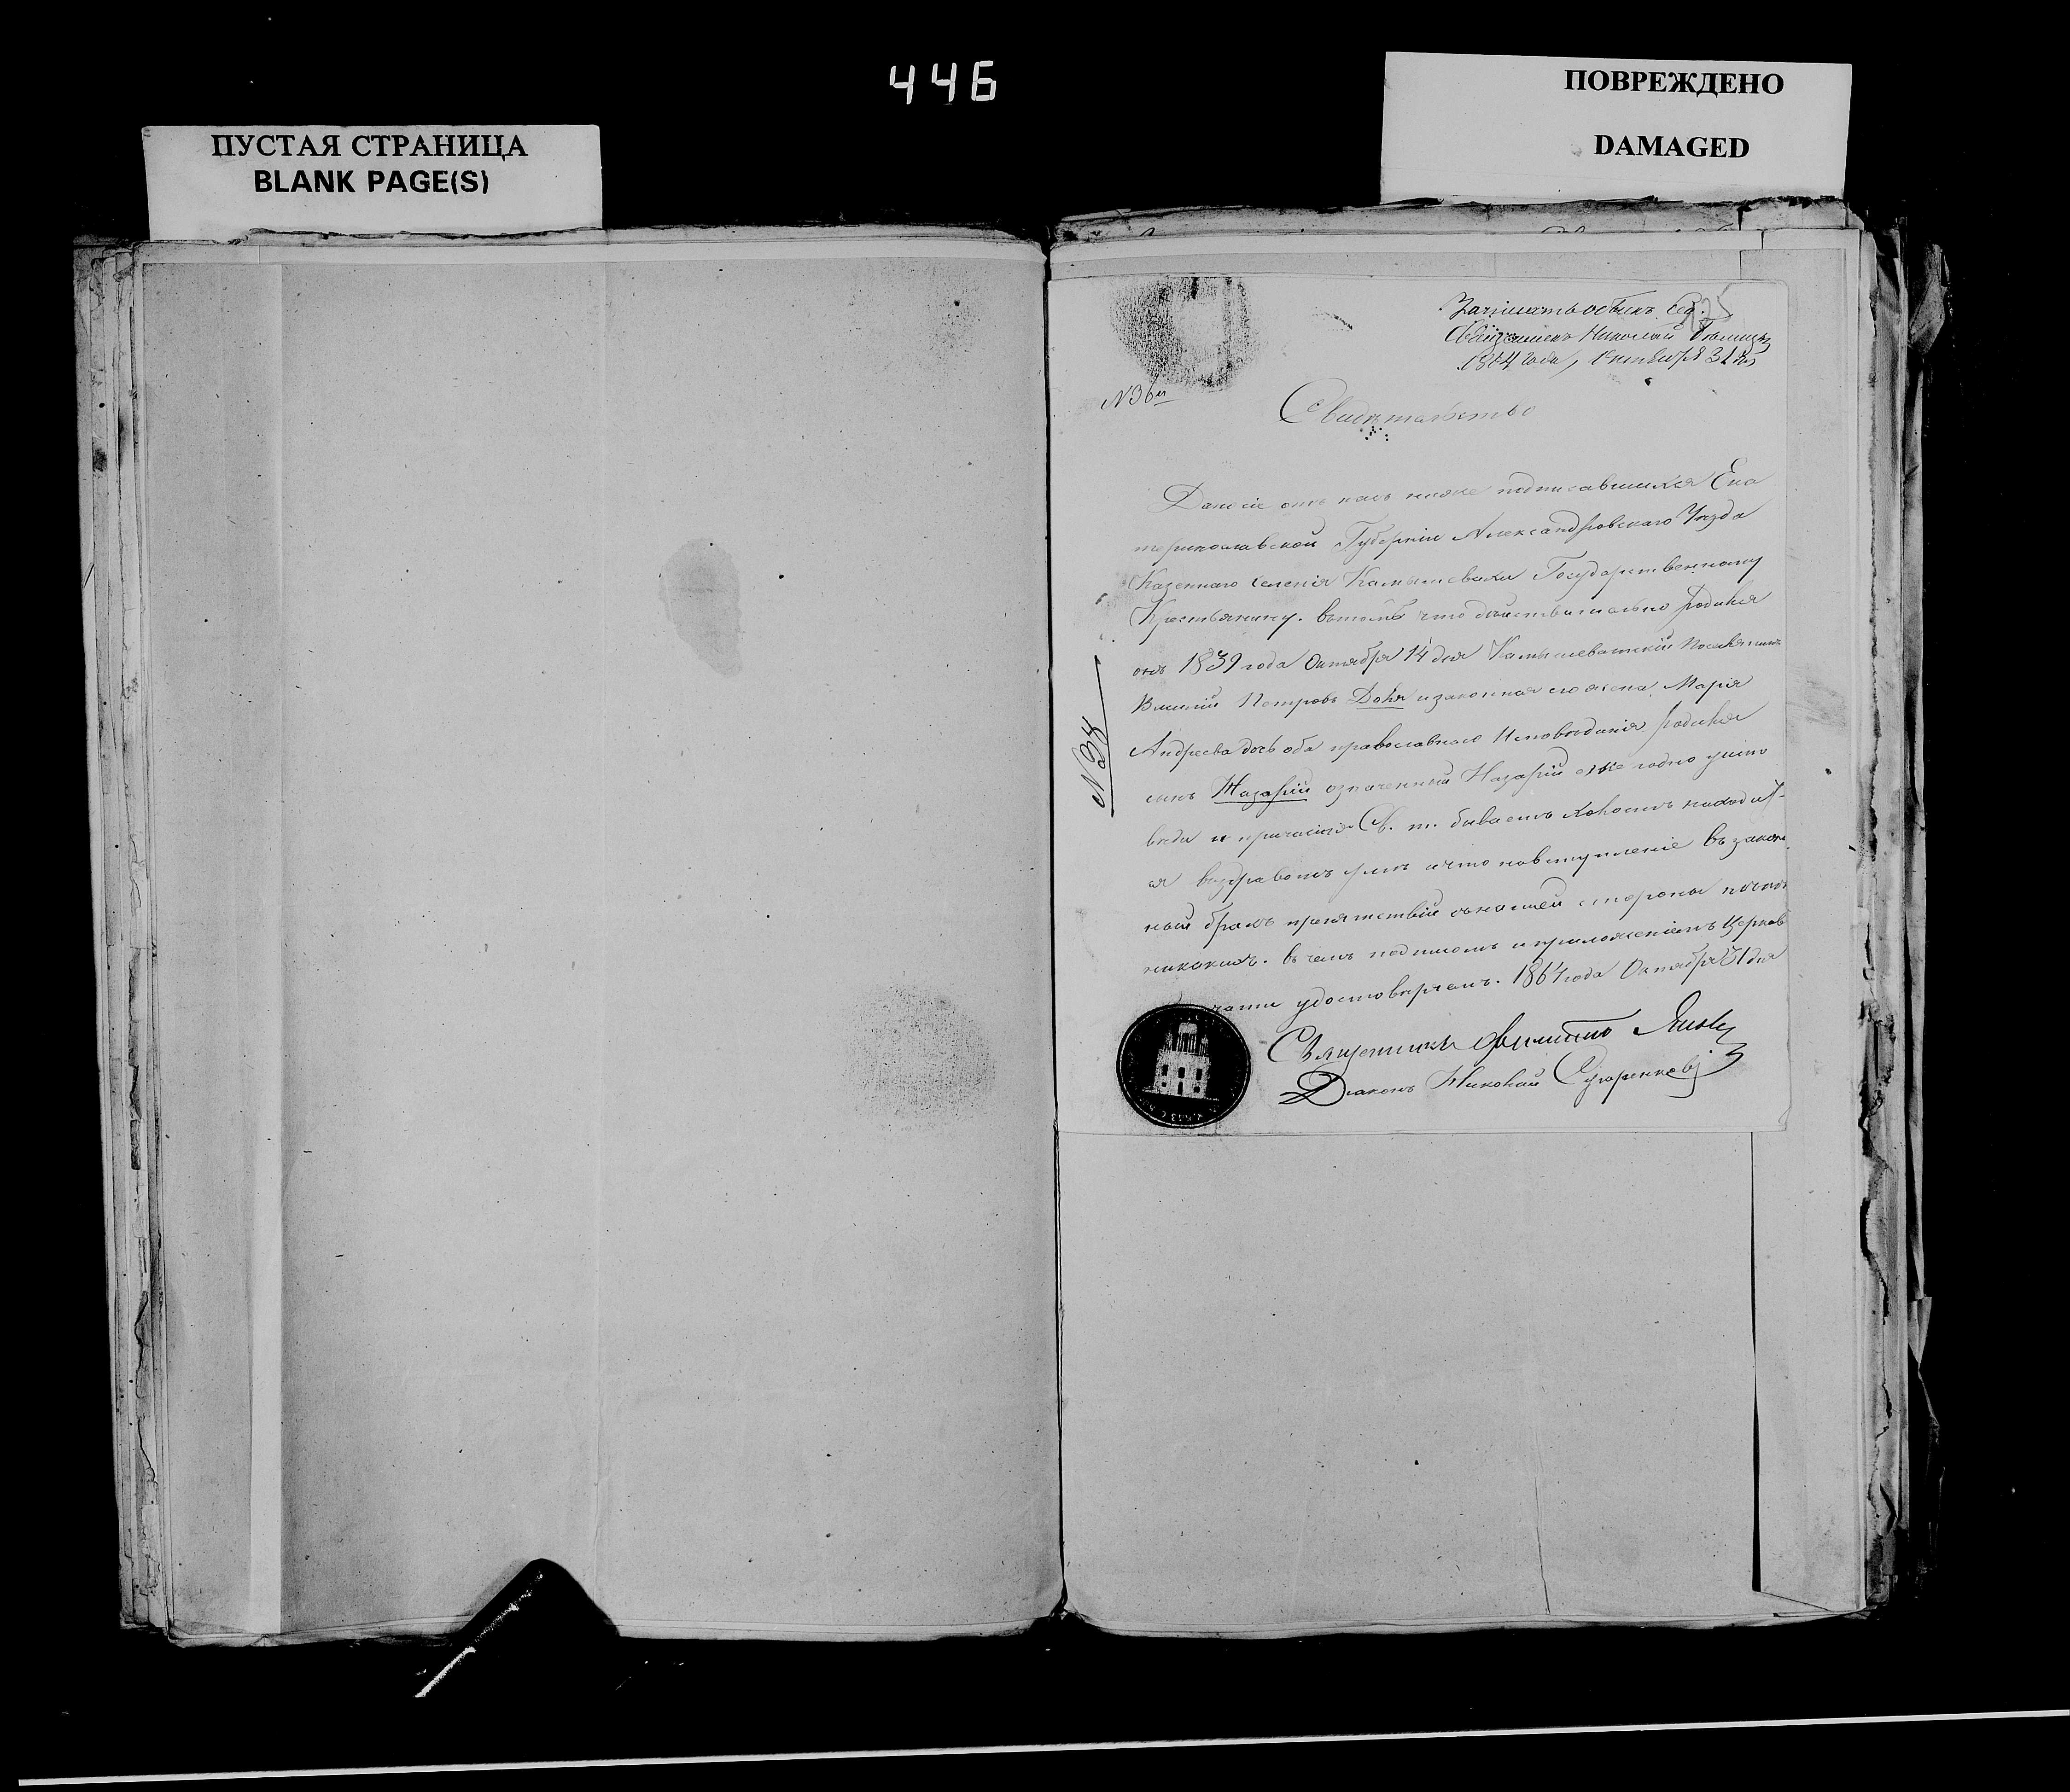 446
ПУСТАЯ СТРАНИЦА
BLANK PAGE(S)
ПОВРЕЖДЕНО
DAMAGED
Священникъ Николай
1864 года, Октября 31 дня
Свидѣтельство
Дано сіе отъ насъ ниже подписавшихся Ека
теринославской Губерніи Александровскаго Уѣзда
Казеннаго селенія Камышевахи Государственному
Крестьянину. въ томъ что дѣйствительно родился
онъ 1839 года Октября 14 дня Камышеватскій Поселянинъ
Петровъ Доля и законная его жена Марія
Андреева дочь оба православнаго Исповѣданія родился
сынъ Назарій означенный Назарій еже годно у испо
вѣди и причастія Св. т. бываетъ холостъ находит-
ся въ здравомъ умѣ и что на вступленіе въ закон
ный бракъ препятствій съ нашей стороны
никакихъ. въ чемъ подписомъ и приложеніемъ Церков
печати удостовѣряемъ. 1864 года Октября 31 дня
Священникъ Филиппъ
Діаконъ Николай
№ 38